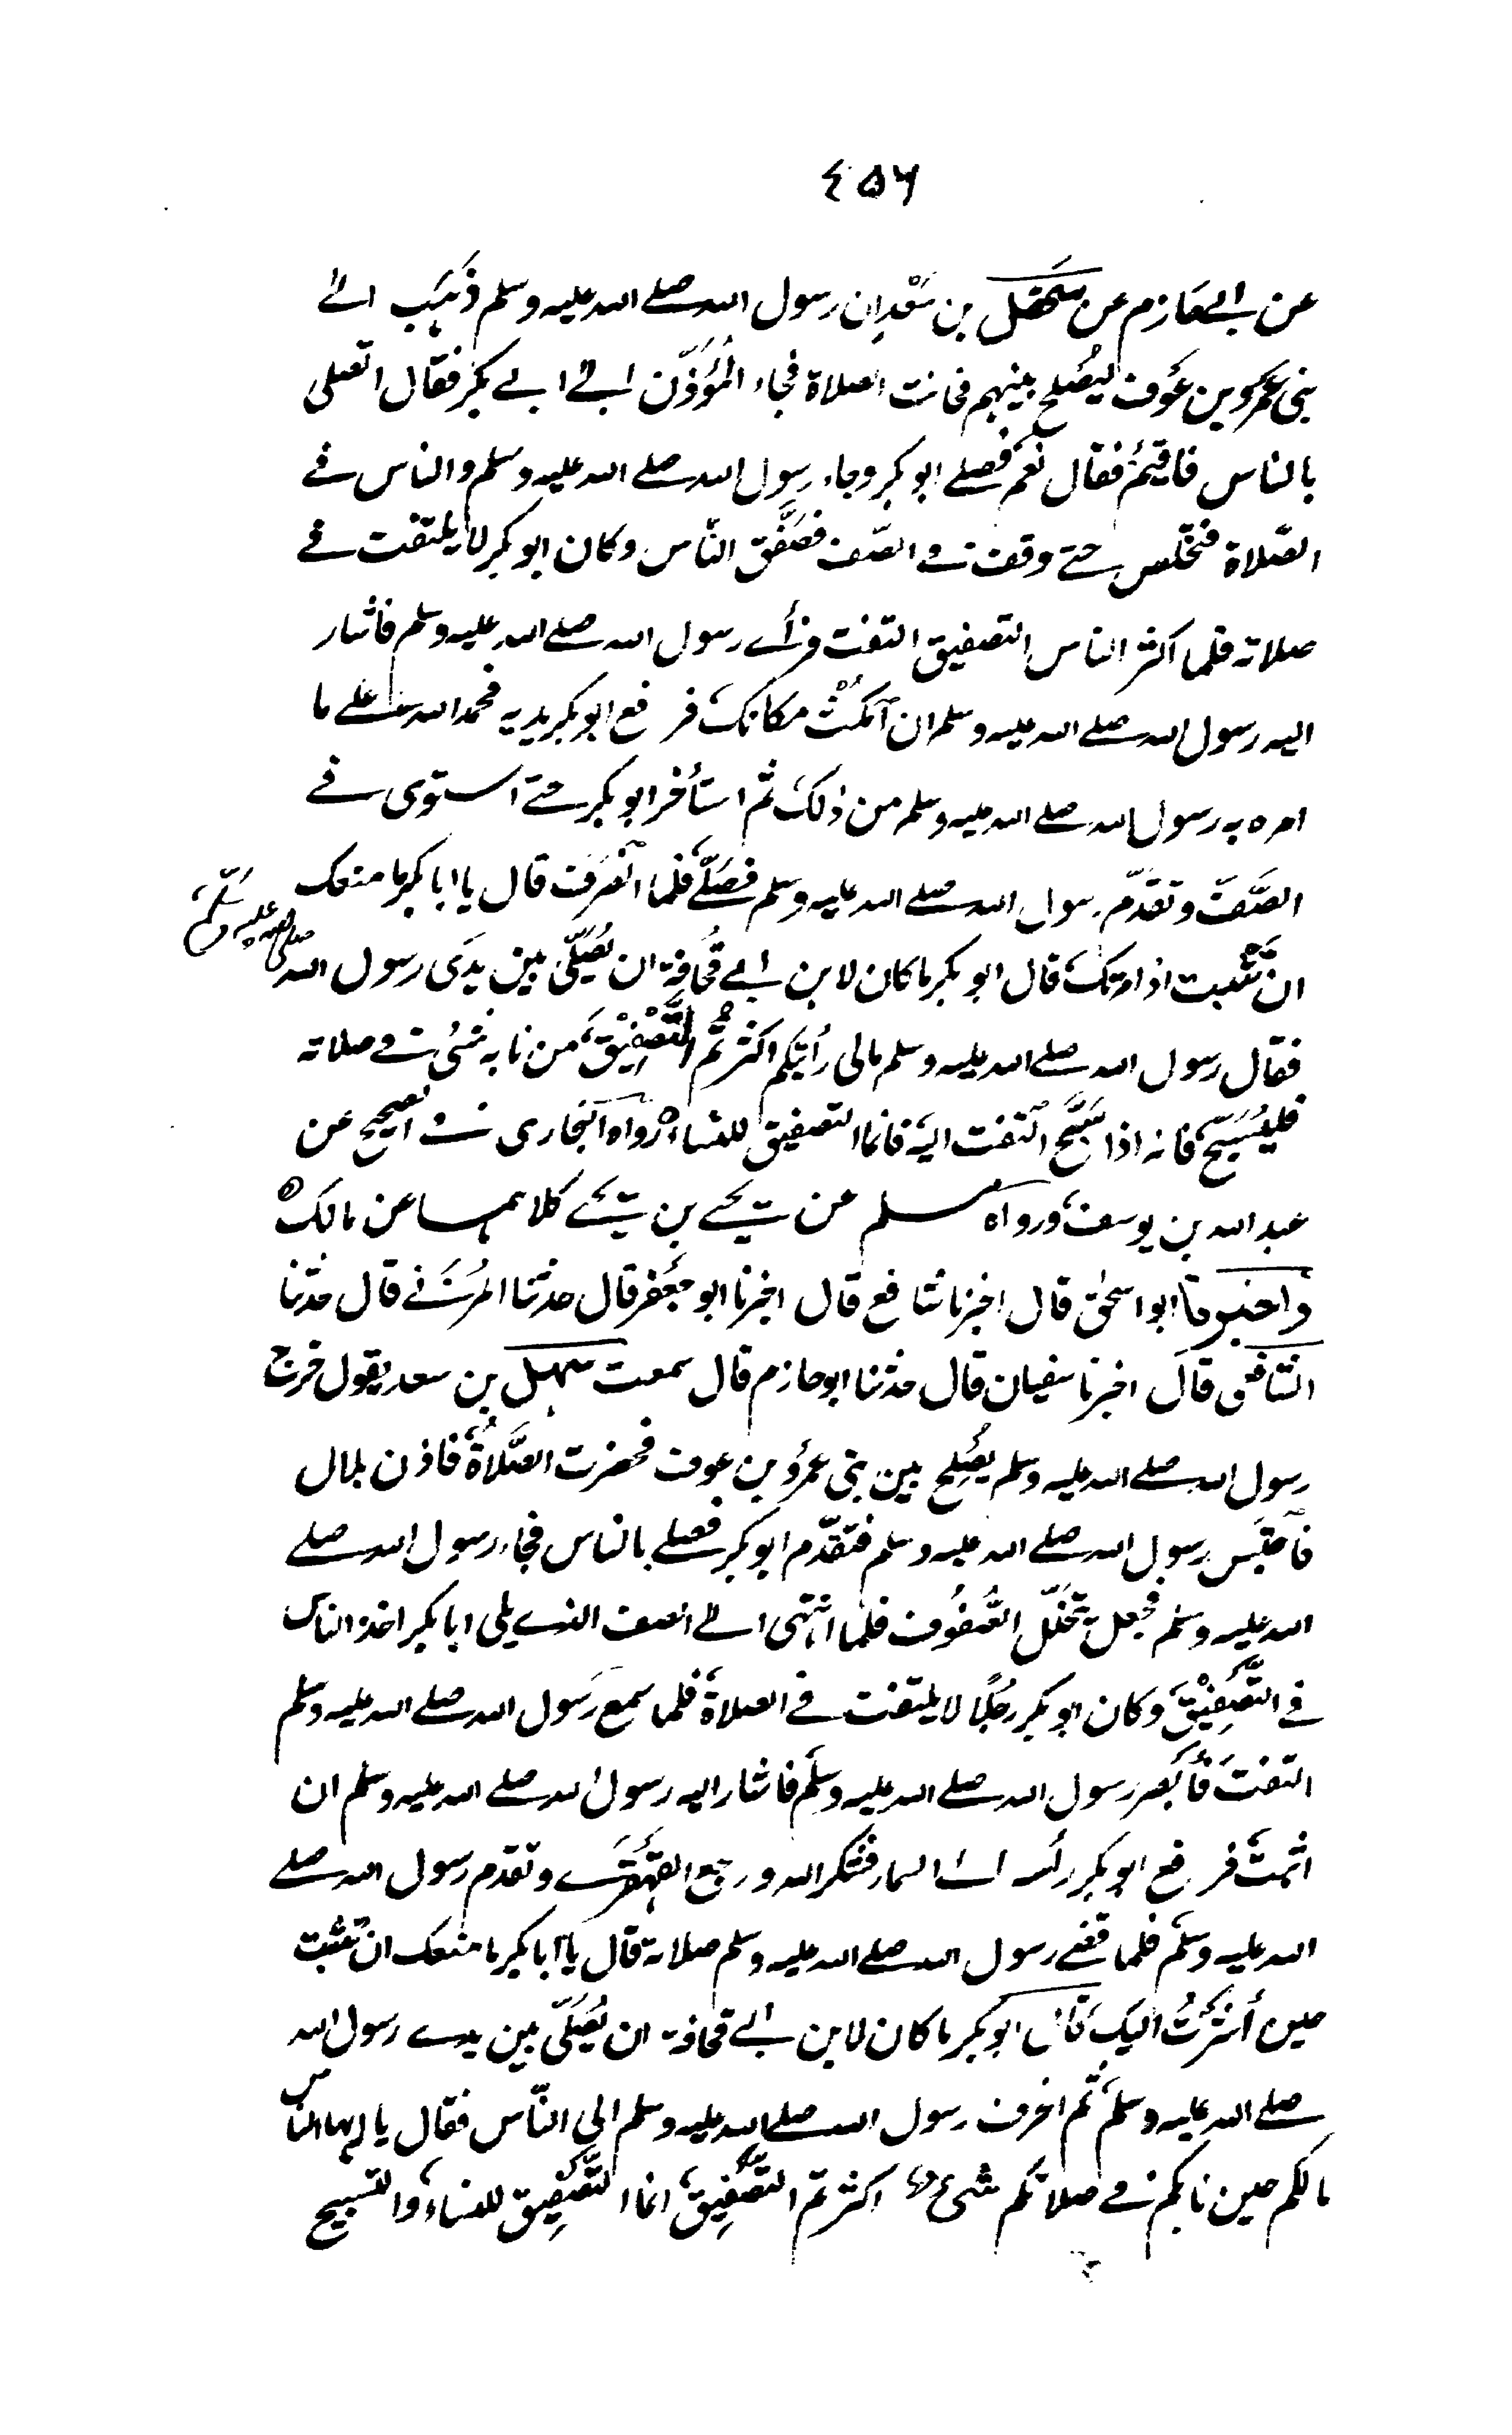 ٤٥٦
عن ابي حازم عن سهل بن سَعْدٍ ان رسول الله صلى الله عليه وسلم ذَهَبَ الى
بنى عَمْرو بن عَوف ليُصْلح بينهم فحانت الصلاة فجاء المُؤذّن الى ابي بكر فقال اتصلى
بالناس فاقيمُ فقال نَعَم فصلى ابو بكر وجاء رسول الله صلى الله عليه وسلم والناس في
الصّلاة فتخلّص حتى وقف في الصّف فصَفَّق النّاس وكان ابو بكر لا يلتفت في
صلاته فلما اكثر الناس التصفيق التفت فرأى رسول الله صلى الله عليه وسلم فاشار
اليه رسول الله صلى الله عليه وسلم ان اَمكُثْ مكانَك فرفع ابو بكر يديه فحمد الله على ما
امره به رسول الله صلى الله عليه وسلم من ذلك ثم استأخر ابو بكر حتى استوى في
الصَّفّ وتقدّم رسول الله صلى الله عليه وسلم فصَلّى فلما انْصَرَف قال يا ابا بكر ما منعك
ان تَثْبت اذ امرتك قال ابو بكر ما كان لابن ابي قُحافة ان يُصَلّى بين يدَى رسول الله صلى الله عليه وسلّم
فقال رسول الله صلى الله عليه وسلم مالى رأيتكم اكثرْتُم التَّصْفِيْقَ من نابه شئ في صلاته
فليُسَبّح فانه اذا سَبَّح التفت اليه فانما التصفيق للنساء رواه البخارى في الصحيح عن
عبد الله بن يوسف ورواه مسلم عن يحيى بن يحيى كلاهما عن مالك
واخبرنا ابو اسحٰق قال اخبرنا شافع قال اخبرنا ابو جعفر قال حدثنا المُزَني قال حدثنا
الشافعى قال اخبرنا سفيان قال حدثنا ابو حازم قال سمعت سهل بن سعد يقول خرج
رسول الله صلى الله عليه وسلم يُصْلِح بين بنى عمرو بن عوف فحضرت الصَّلاةُ فاذن بلال
فاَحتَبَس رسول الله صلى الله عليه وسلم فتقدّم ابو بكر فصلى بالناس فجاء رسول الله صلى
الله عليه وسلم فجعل يتخلّل الصُّفُوف فلما انتهى الى الصف الذى يلى ابا بكر اخذ الناس
في التَّصْفِيْق وكان ابو بكر رجُلًا لا يلتفت في الصلاة فلما سمع رَسول الله صلى الله عليه وسلم
التفتَ فأبْصَر رسول الله صلى الله عليه وسلّم فاشار اليه رسول الله صلى الله عليه وسلم ان
اثْبت فرفع ابو بكر رأسه الى السماء فشكر الله ورجع القَهْقَرى وتقدم رسول الله صلى
الله عليه وسلّم فلما قضى رسول الله صلى الله عليه وسلم صلاته قال يا ابا بكر ما منعك ان تثبت
حين أشَرْتُ اليكَ قال ابو بكر ما كان لابن ابي قحافة ان يُصَلّى بين يدى رسول الله
صلى الله عليه وسلم ثم انحرف رسول الله صلى الله عليه وسلم الى النّاس فقال يا ايها الناس
مالكم حين نابكم في صلاتكم شئ اكثرتم التَّصْفِيقَ انما التَّصْفِيق للنساء والتسبيح